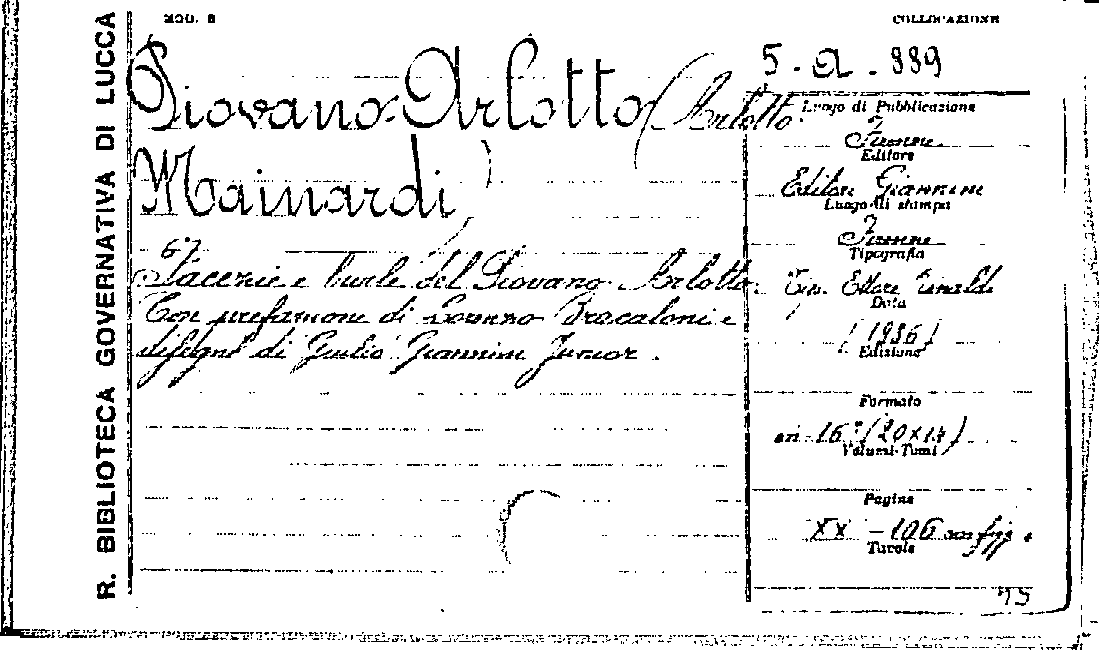 R. BIBLIOTECA GOVERNATIVA DI LUCCA
MOD. 8
COLLOCAZIONE
5 - a - 339
Piovano Arlotto (Arlotto
Mainardi)
Facezie e burle del Piovano Arlotto.
Con prefazione di Lorenzo Bracaloni e
disegni di Giulio Giannini Junior.
Luogo di Pubblicazione
Firenze
Editore
Editore Giannini
Luogo di stampa
Firenze
Tipografia
Tip. Ettore Rinaldi
Data
(1936)
Edizione
Formato
in 16° (20x14)
Volumi-Tomi
Pagine
XX - 106 con figg.
Tavole